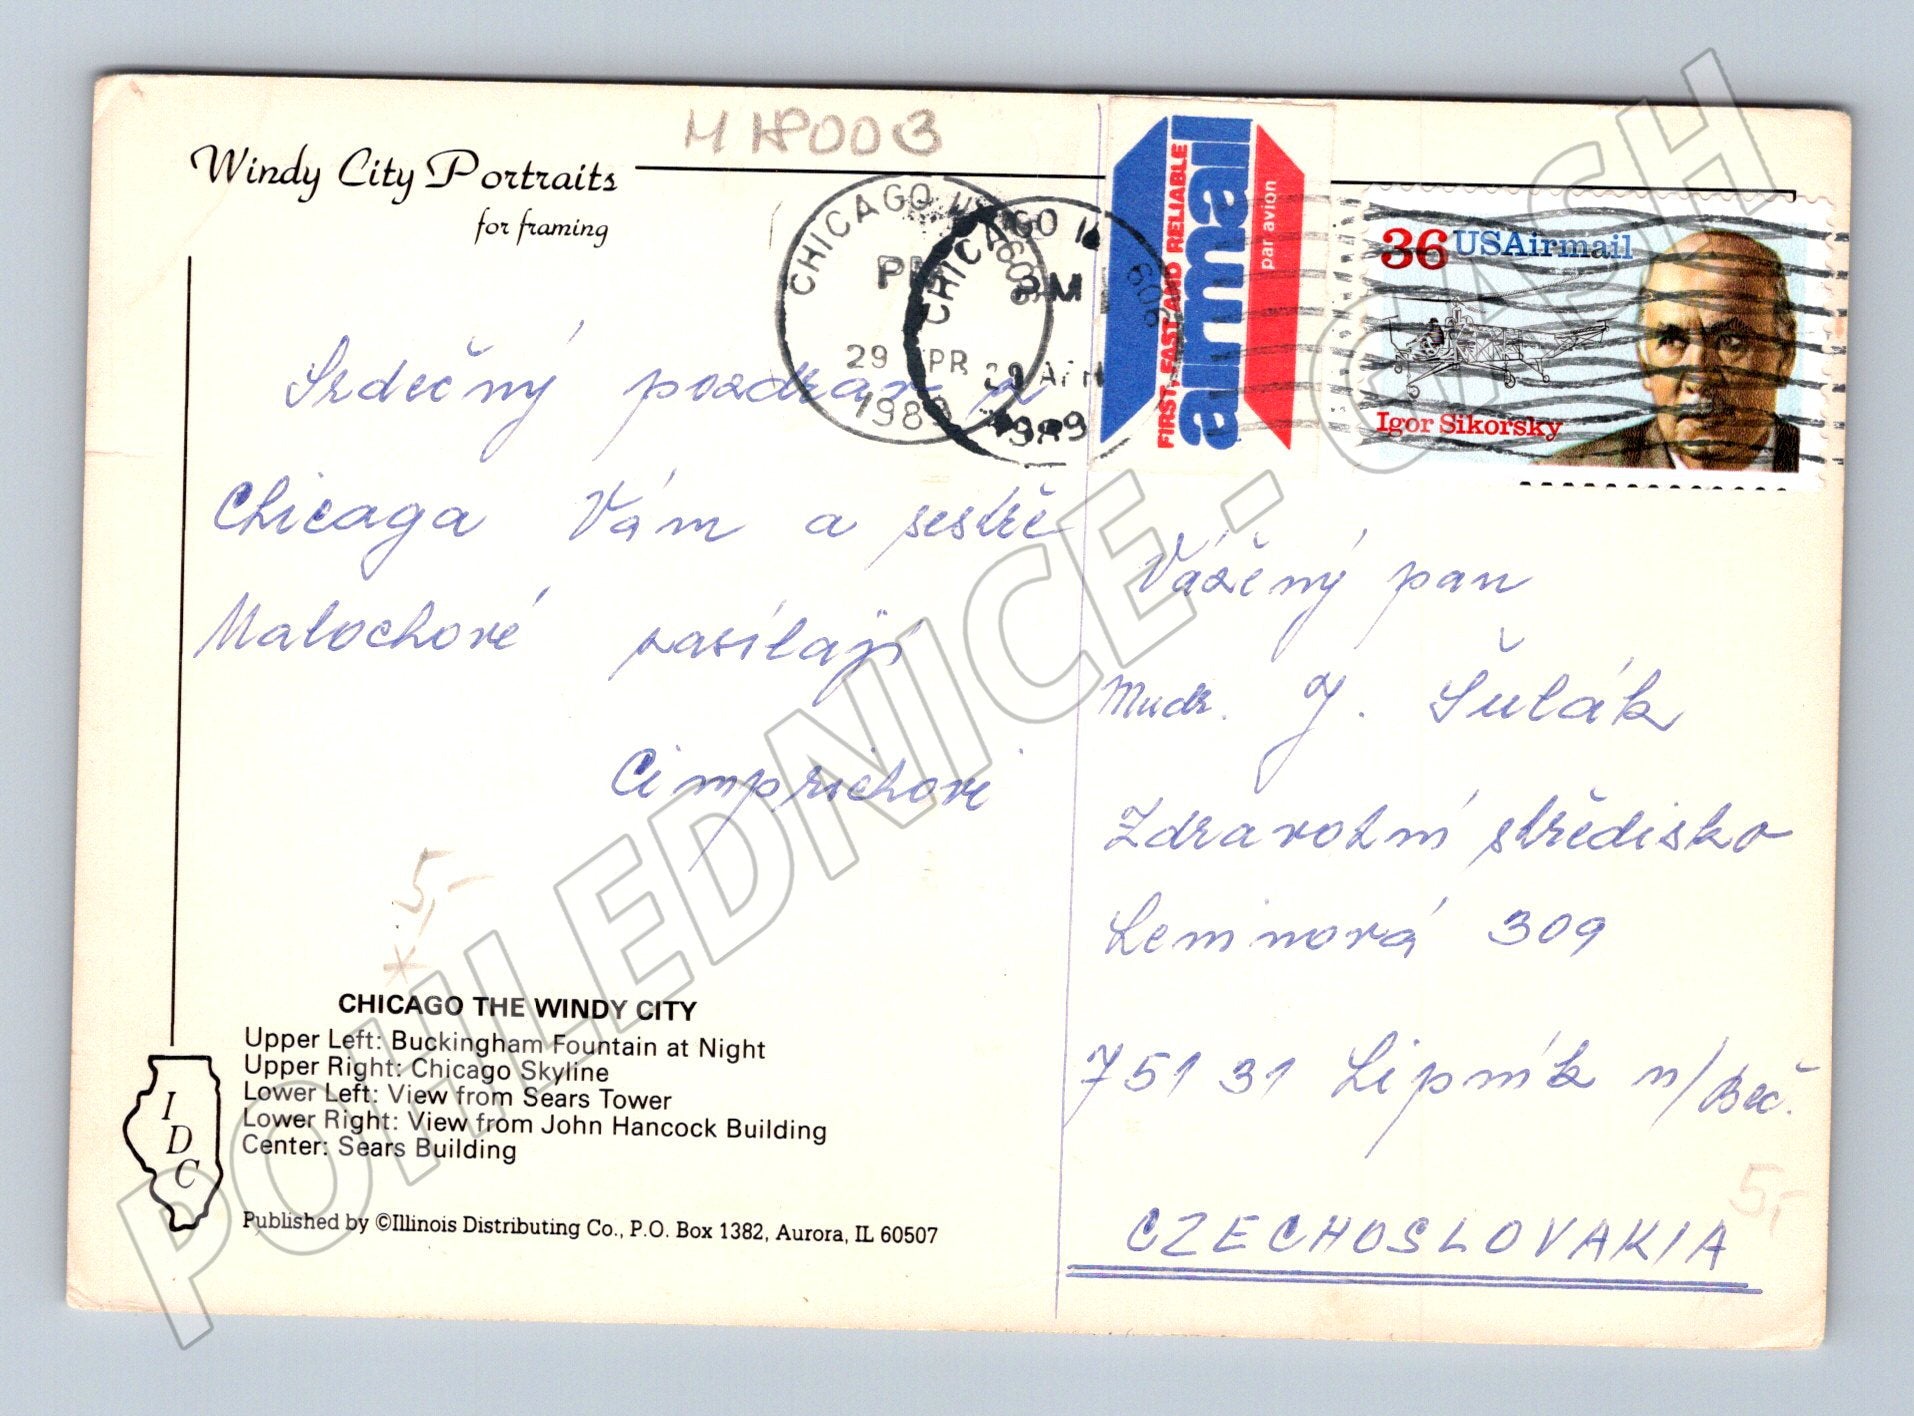 M 18003
Windy City Portraits
for framing
CHICAGO
PM
29 APR
1989
CHICAGO IL 606
PM
29 APR
1989
FIRST, FAST AND RELIABLE
airmail
par avion
36 USAirmail
Igor Sikorsky
Srdečný pozdrav z
Chicaga Vám a sestře
Malochové zasílají
Cimprichovi
5,-
CHICAGO THE WINDY CITY
Upper Left: Buckingham Fountain at Night
Upper Right: Chicago Skyline
Lower Left: View from Sears Tower
Lower Right: View from John Hancock Building
Center: Sears Building
I
D
C
Published by ©Illinois Distributing Co., P.O. Box 1382, Aurora, IL 60507
Vážený pan
Mudr. J. Šulák
Zdravotní středisko
Leninová 309
751 31 Lipník n/Beč.
5,-
CZECHOSLOVAKIA
POHLEDNICE - CASH